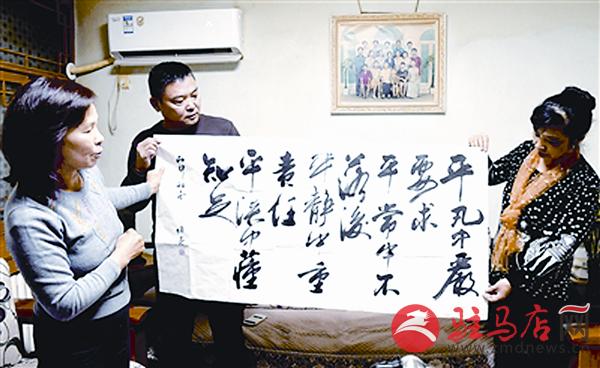 平凡中嚴
要求
平常中不
落後
平靜中重
責任
平淡中懂
知足
驻马店网
www.zmdnews.cn